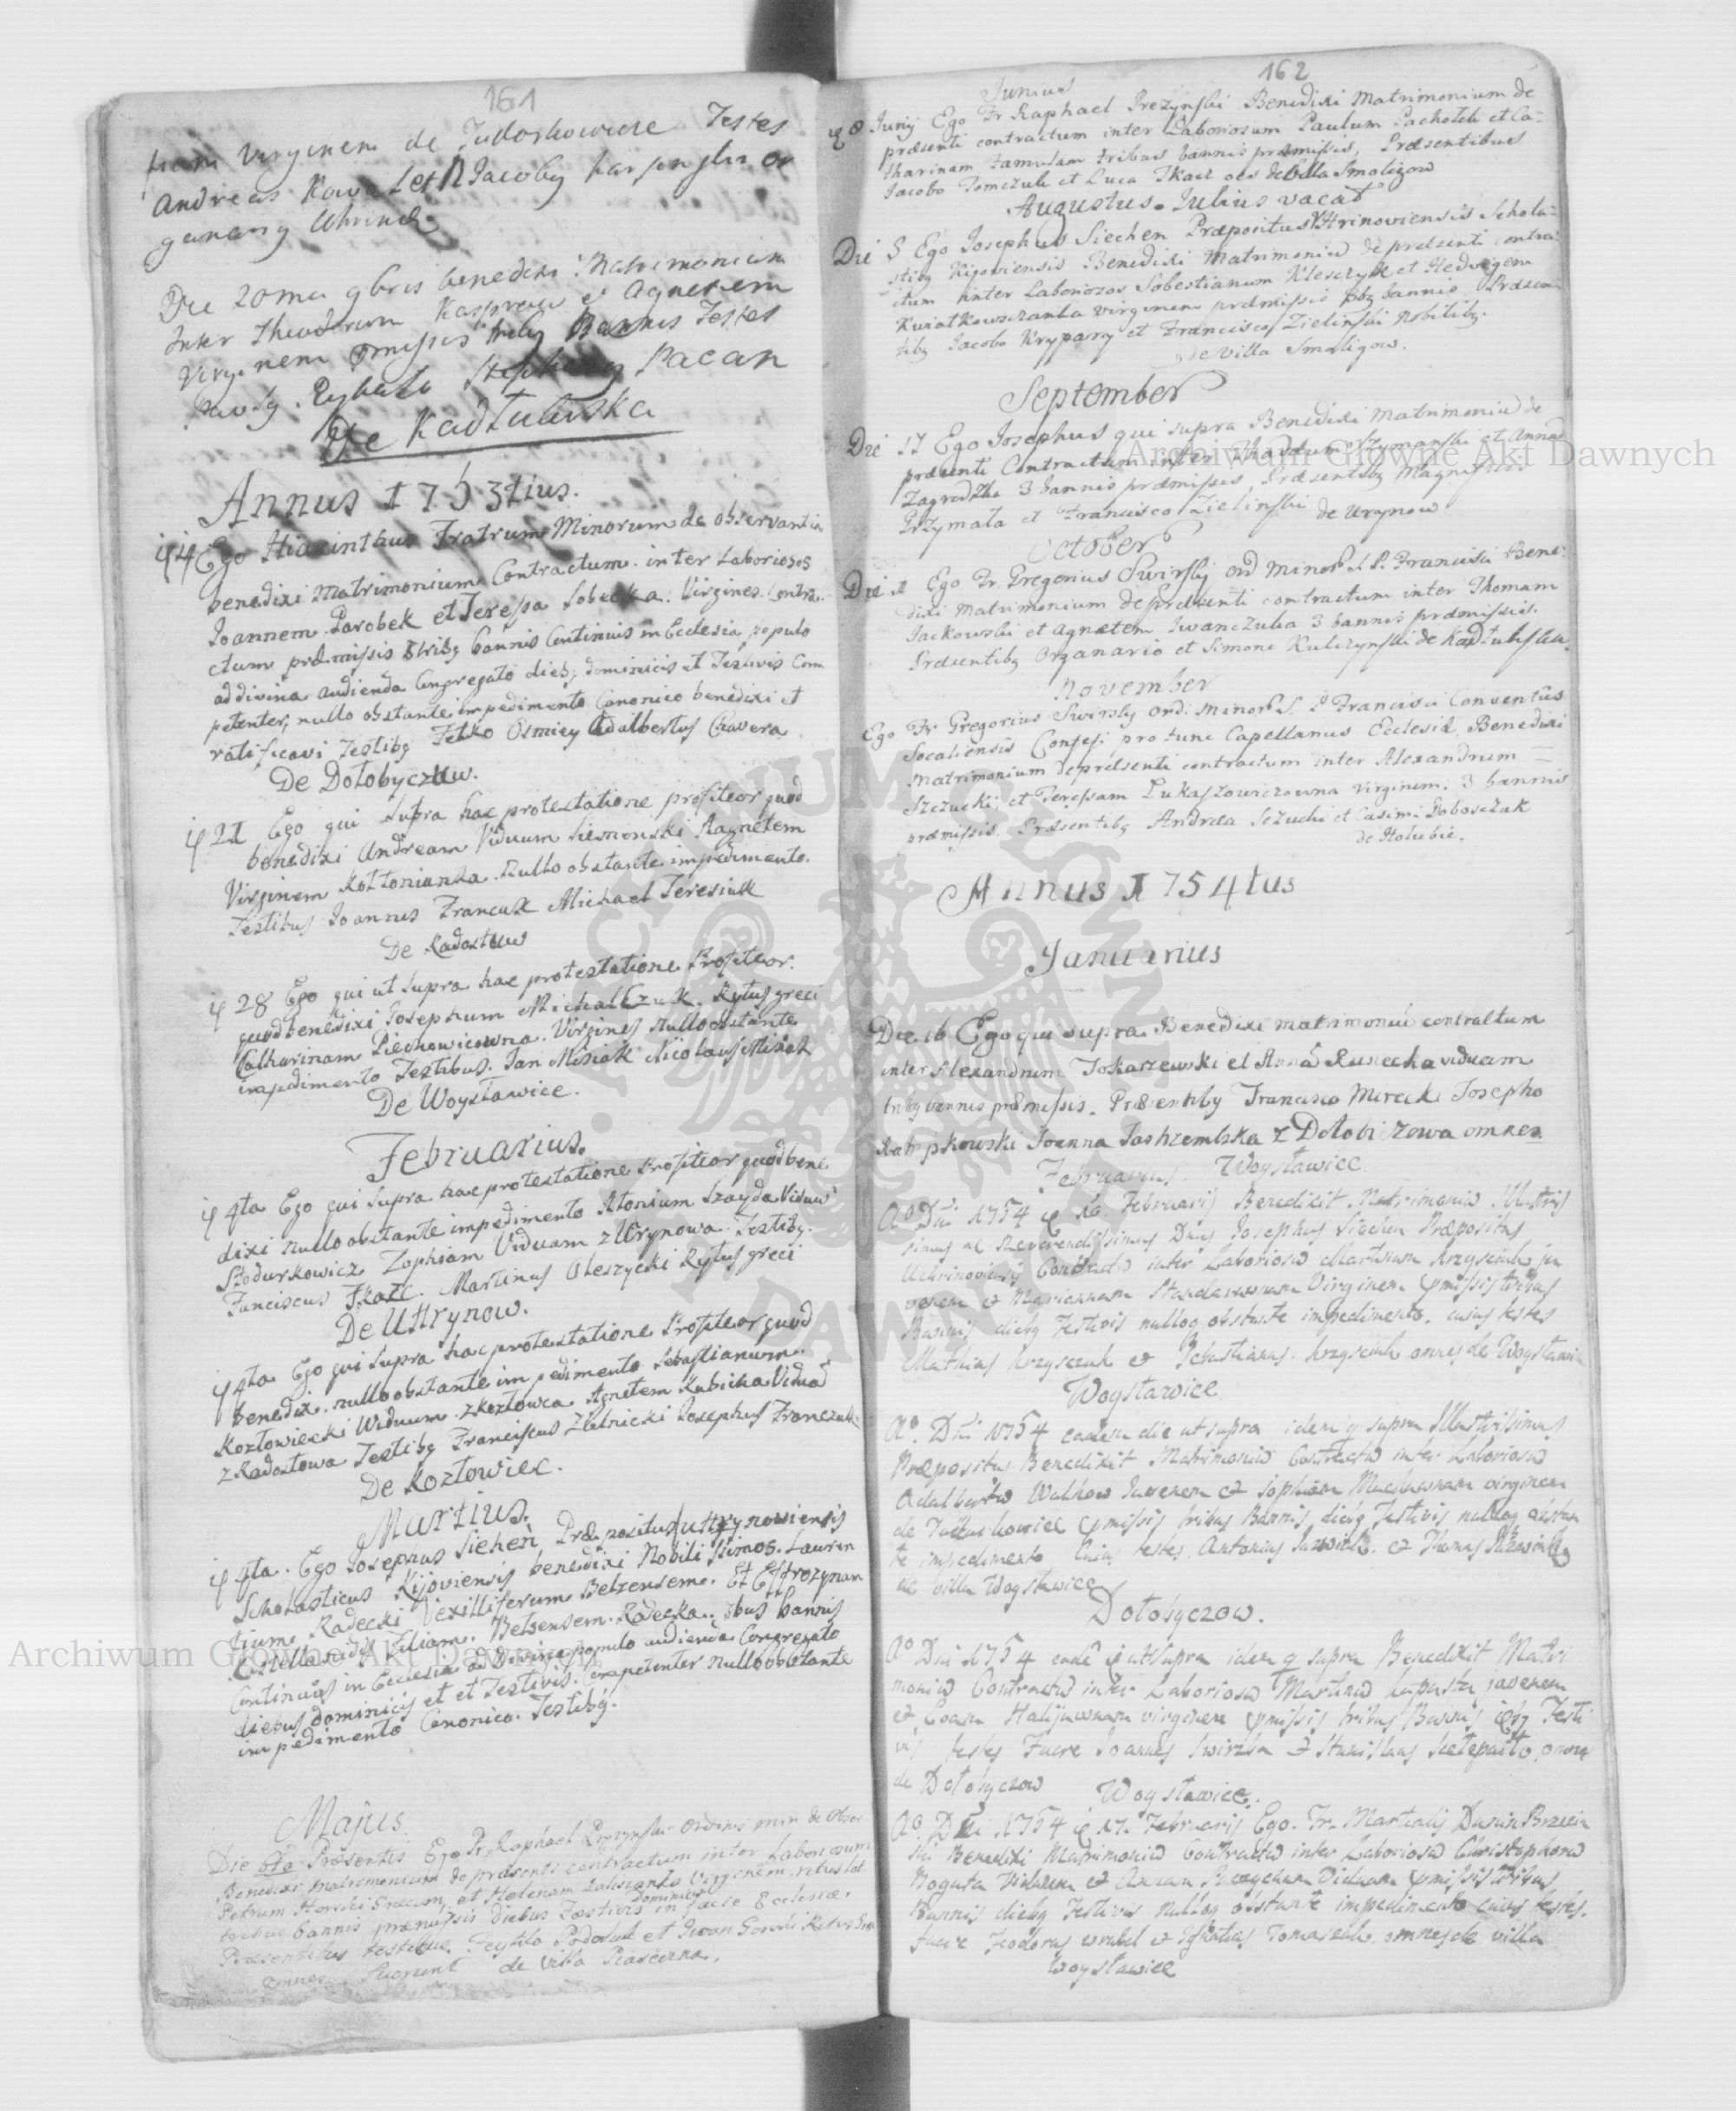 161
Virginem de Tudorkowicze Testes
Andreas Kowal et Jacoby
Die 20ma 9bris benedixi Matrimonium
Inter Theodorum Kasprow et Agnetem
Virginem pmissis trib9 Bannis Testes
Pacan
De Kadłubiska
Annus 1753tius.
14 Ego Hiacinthus Fratrum Minorum de observantia
benedixi Matrimonium Contractum inter Laboriosos
Joannem Parobek et Teressa Sobecka Virgines Contra
ctum præmissis trib9 bannis Continuis in Ecclesia populo
ad divina audienda Congregato dieb9 dominicis et Festivis Com
petenter, nullo obstante impedimento Canonico benedixi et
ratificavi Testib9 Fetko Osmicy Adalbertus Chavera
De Dołobyczow.
21 Ego qui supra hac protestatione profiteor quod
benedixi Andream Viduum Siemonski Aagnetem
Virginem Kottonianka nullo obstante impedimento.
Testibus Joannes Francuk Michael Teresiuk
De Radostow
28 Ego qui ut supra hac protestatione Profiteor
quod benedixi Josephum Michalczuk Rytus greci
Catharinam Piechowicowna Virgines Nullo obstante
impedimento Testibus Jan Misiak Nicolaus Misiak
De Woysławice.
Februarius.
4ta Ego qui supra hac protestatione Profiteor quod bene
dixi nullo obstante impedimento Atonium Szayda Viduū
Stodurkowicz Zophiam Viduam z Uhrynowa Testib9
Funciscus Tkacz Martinus Oleszycki Rytus greci
De Uhrynow.
4ta Ego qui supra hac protestatione Profiteor quod
benedixi nullo obstante impedimento Sebastianum
Kozłowiecki Widuum z Kozłowca Agnetem Kubicka Viduā
z Radostowa Testib9 Franciscus Złotnicki Josephus Franczuk
De Kozłowiec.
Martius.
4ta Ego Josephus Siehen Præpositus Uhrynowiensis
Scholasticus Kijoviensis benedixi Nobilissimos Lauren
tium Radecki Vexilliferum Belzensem Et Effrozynam
Filiam Belsensem Radecka 3bus bannis
Continuis in Ecclesia ad Divina populo audienda Congregato
diebus dominicis et et Festivis Competenter nullo obstante
impedimento Canonico Testib9.
Majus
Die 6ta Præsentis Ego Fr Raphael Prezynski Ordinis min de Obser
Benedixi matrimonium de præsenti contractum inter Laboriosum
Petrum Horski Græcum, et Helenam Virginem ritus lat
tribus bannis præmissis Diebus Dominicis Festivis in facie Ecclesiæ.
Præsentibus testibus et Iwan Gorski
omnes fuerunt de Villa Piaseczna.
162
Junius
8 Junij Ego Fr Raphael Prezynski Benedixi Matrimonium de
præsenti contractum inter Laboriosum Paulum Pachołek et Ca=
tharinam famulam tribus bannis præmissis, Præsentibus
Jacobo Tomczuk et Luca Tkacz oes de Villa Smoligow
Augustus. Julius vacat
Die 5 Ego Josephus Siechen Præpositus Uhrinoviensis Schola=
stic9 Kijoviensis Benedixi Matrimoniū de præsenti contra=
ctum inter Laboriosos Sebestianum Klesczyk et Hedvigem
Kwiatkowszczanka virginem præmissis 3b9 bannis, Præsen=
tib9 Jacobo Krypary et Francisco Zielinski Nobilib9.
de Villa Smoligow.
September
Die 17 Ego Josephus qui supra Benedixi Matrimoniū de
præsenti Contractum inter Thaddæum et Annā
Zagrodzka 3 bannis præmissis, Præsentib9 Magnificis
Przymała et Francisco Zielinski de Urynow
October
Die 1 Ego Fr Gregorius Swirsky Ord Minor S. P. Francisci Bene=
dixi Matrimonium de præsenti contractum inter Thomam
Jackowski et Agnetem Iwanczuka 3 bannis præmissis.
Præsentib9 Organario et Simone Kulczynski de Kadłubiska.
November
Ego Fr Gregorius Swirsky Ordi Minor S. P Francisci Conventus
Socaliensis Confess protunc Capellanus Ecclesiæ, Benedixi
Matrimonium de præsenti contractum inter Alexandrum =
Szczucki, et Teressam Łukaszowiczowna virginem. 3 bannis
præmissis. Præsentib9 Andrea Sczucki et Casimi Doboszczak
de Hołubie.
Annus 1754tus
Januarius
Die 16 Ego qui supra Benedixi matrimoniū contractum
inter Alexandrum Tokarzewski et Annā Rusiecka viduam
trib9 bannis præmissis. Præsentib9 Francisco Mirecki Josepho
Joanna Jastrzembska z Dołobiczowa omnes
Februarius Woysławice
Ao Dni 1754 Februarij Benedixit Matrimoniū Illustris
simus ac Reverendissimus Dnus Josephus Siechen Præpositus
Uchrinoviensis Contractū inter Laboriosū Martinum Krzysciuk ju
venem et Mariannam Virginem pmissis tribus
Bannis dieb9 Festivis nulloq obstante impedimento, cuius testes
Mathias Krzysczuk et Sebastianus Krzysciuk omnes de Woysławice
Woysławice
Ao. Dni 1754 eadem die ut supra idem q supra Illustrissimus
Præpositus Benedixit Matrimoniū Contractū inter Laboriosū
Adalbertū Walkow Juvenem et Sophiam virginem
de Tudorkowice pmissis tribus Bannis dieb9 Festivis nulloq obstan
te impedimento Cuius testes Antonius et Thomas
de villa Woysławice
Dołobyczow.
Ao Dni 1754 eadē ut supra idem q supra Benedixit Matri
moniū Contractū inter Laboriosū Martinū Kapusta juvenem
et Evam virginem pmissis tribus Bannis Festi
vis testes Fuere Joannes Swirzba et Stanislaus omnes
de Dołobyczow
Woysławice.
Ao. Dni 1754 17. Februarij Ego. Fr. Martialis
Benedixi Matrimoniū Contractū inter Laboriosū Christophorū
Roguta Viduum et Annam Viduam pmissis tribus
Bannis dieb9 Festivis nulloq obstante impedimento cuius testes
fuere Teodorus wrubel et Tomaszek omnes de villa
Woysławice
Archiwum Główne Akt Dawnych
Archiwum Główne Akt Dawnych